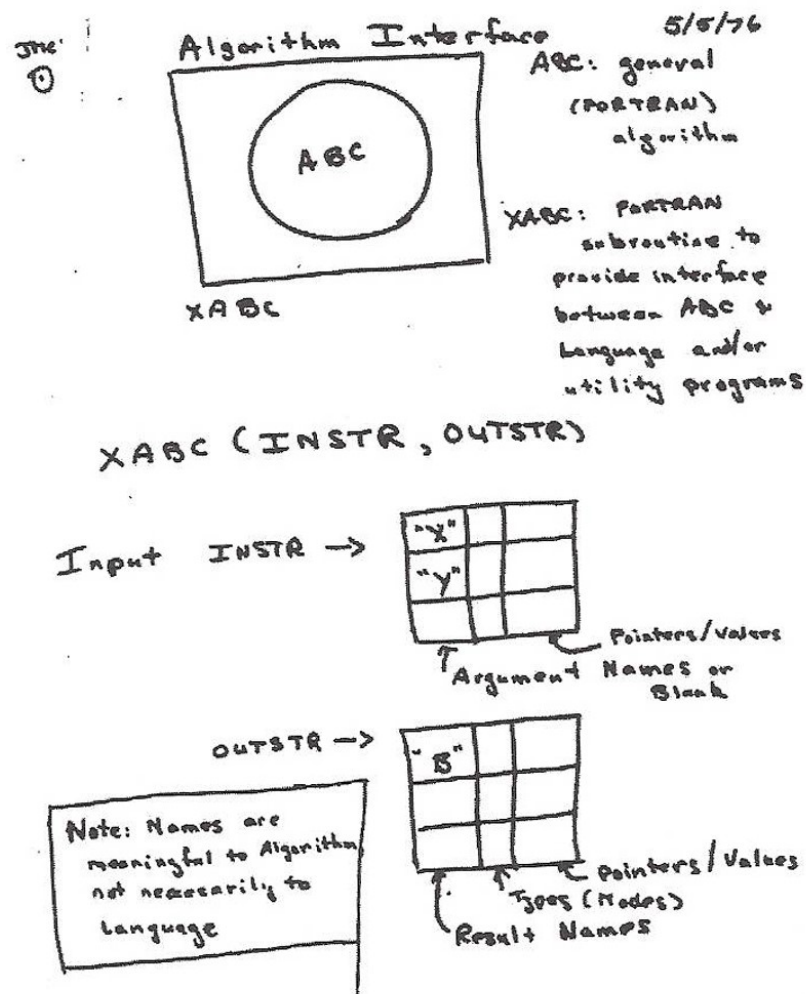 JMC
5/5/76
Algorithm Interface
ABC
XABC
ABC: general
(FORTRAN)
algorithm
XABC: FORTRAN
subroutine to
provide interface
between ABC &
Language and/or
utility programs
XABC (INSTR, OUTSTR)
Input INSTR →
"X"
"Y"
Pointers/Values
Argument Names or
Blank
OUTSTR →
"B"
Pointers/Values
Types (Modes)
Result Names
Note: Names are
meaningful to Algorithm
not necessarily to
Language